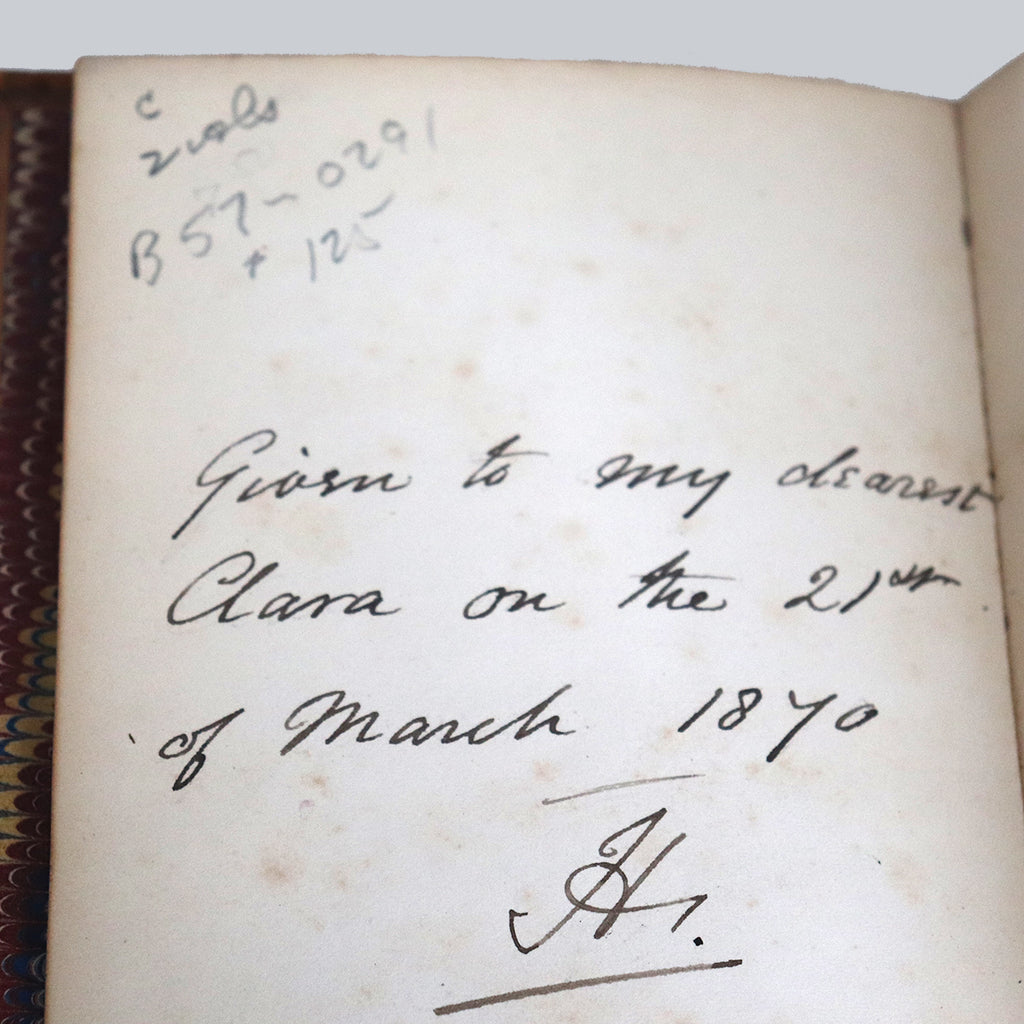 c
2 vols
B 57-0291
+ 125
Given to my dearest
Clara on the 21st
of March 1870
H.